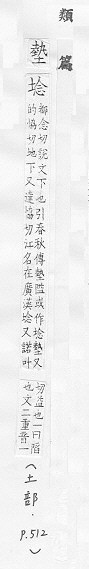 類篇
墊 埝
都念切說文下也引春秋傳墊隘或作埝墊又
的協切地下又達協切江名在廣漢埝又諾叶
切益也一曰陷
也文二重音一
(土部．
P.512)